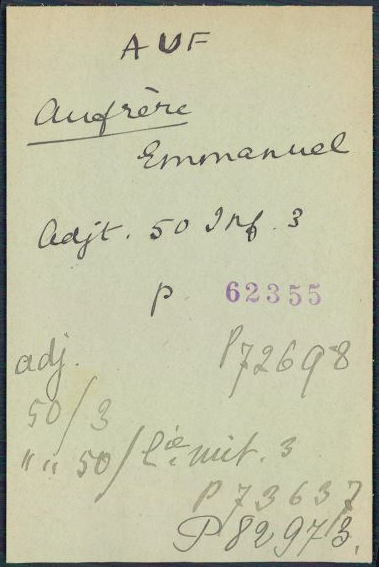 AUF
Aufrère
Emmanuel
Adjt. 50 Inf. 3
P 62355
adj. P72698
50/3
" " 50/Cie. mit. 3
P 73637
P 82973.